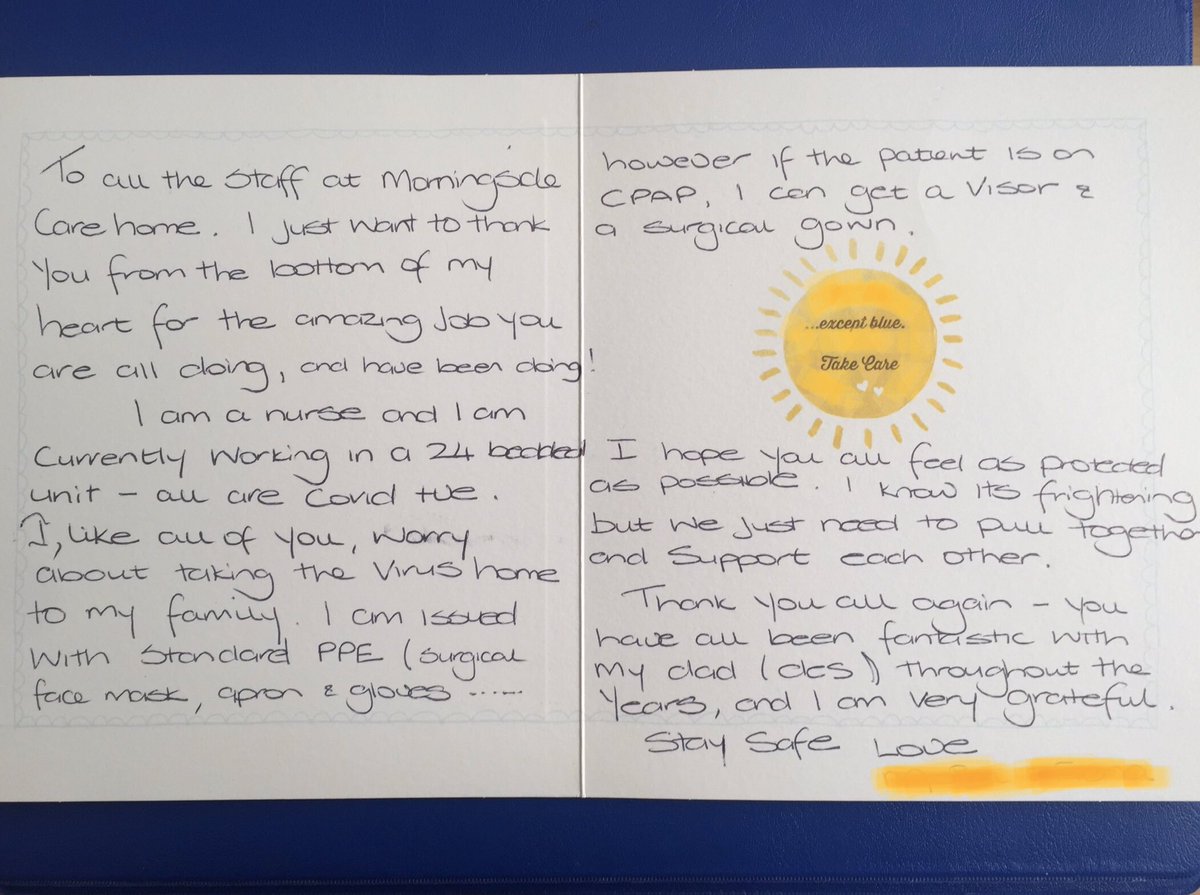 To all the staff at Morningside
Care home. I just want to thank
you from the bottom of my
heart for the amazing job you
are all doing, and have been doing!
I am a nurse and I am
currently working in a 24 bedded
unit - all are Covid +ve.
I, like all of you, worry
about taking the virus home
to my family. I am issued
with standard PPE (surgical
face mask, apron & gloves ......
however if the patient is on
CPAP, I can get a visor &
a surgical gown.
...except blue.
Take Care
I hope you all feel as protected
as possible. I know its frightening
but we just need to pull together
and support each other.
Thank you all again - you
have all been fantastic with
my dad (des) throughout the
years, and I am very grateful.
Stay Safe Love